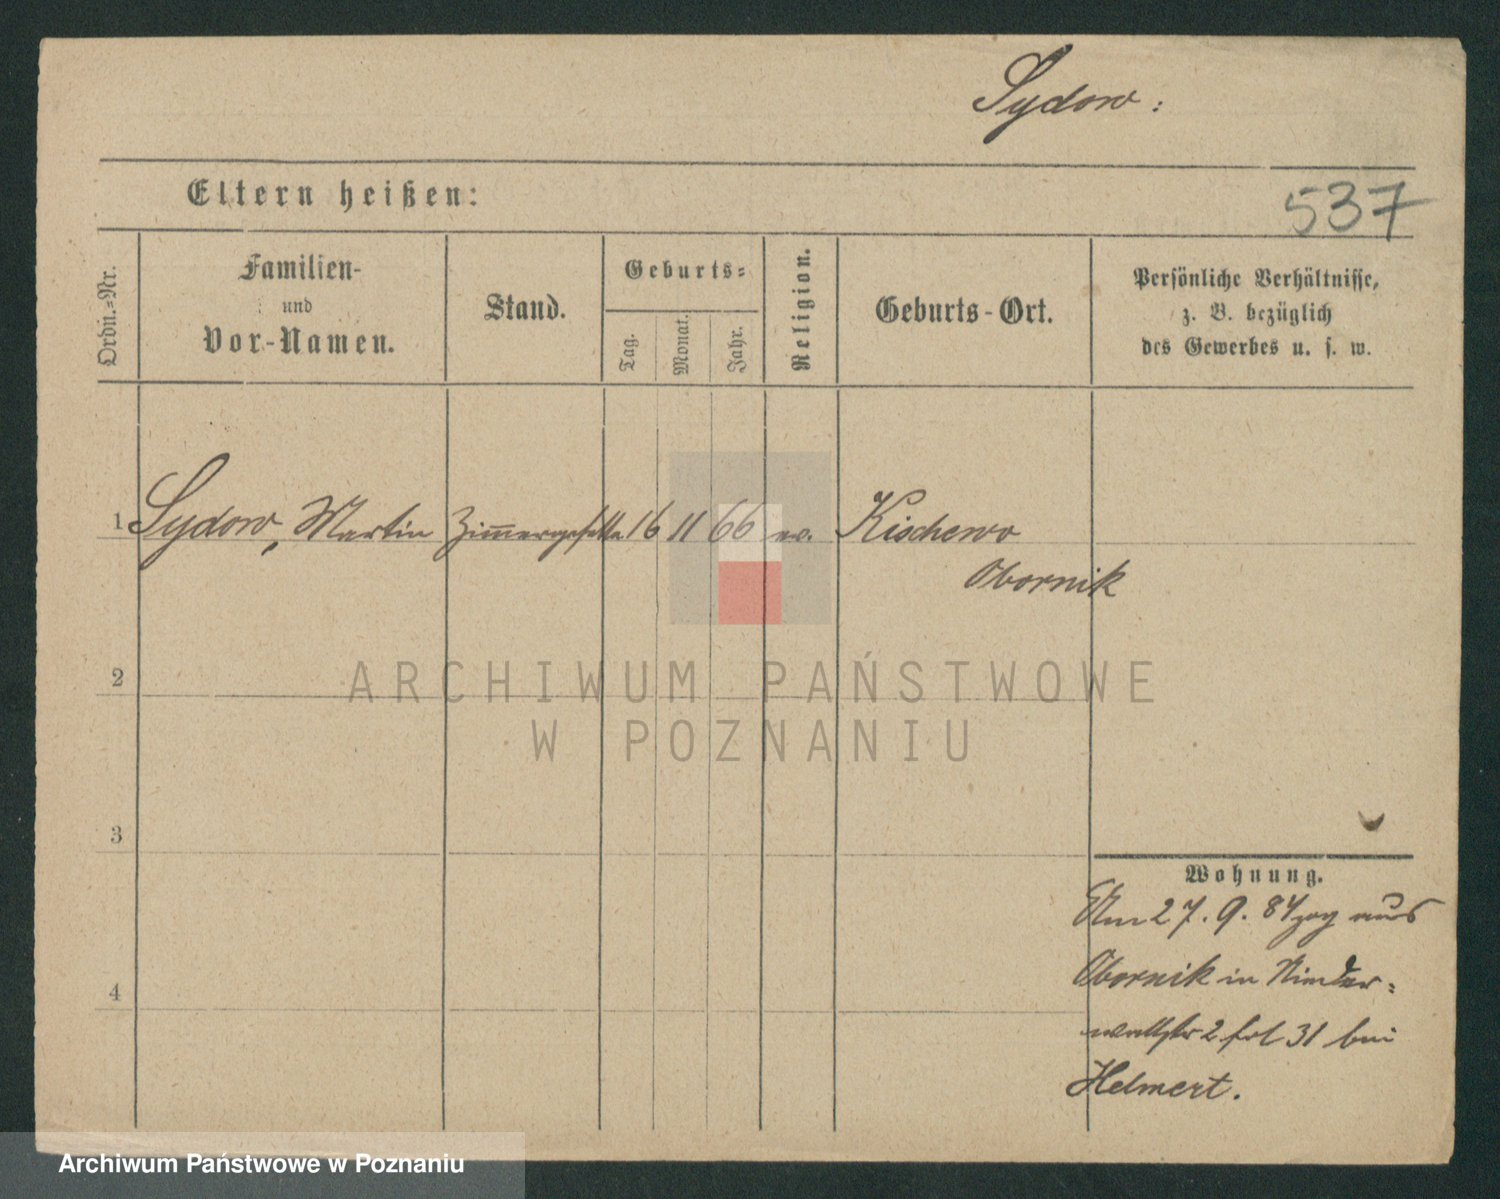 Sydow:
Eltern heißen:
537
Ordn.-Nr.
Familien-
und
Vor-Namen.
Stand.
Geburts-
Tag.
Monat.
Jahr.
Religion.
Geburts-Ort.
Persönliche Verhältnisse,
z. B. bezüglich
des Gewerbes u. s. w.
1 Sydow, Martin Zim̅ergeselle 16 11 66 ev. Kischewo
Obornik
2
ARCHIWUM PAŃSTWOWE
W POZNANIU
3
Wohnung.
Am 27. 9. 84 zog aus
Obornik in Nieder=
wallstr 2 fol 31 bei
Helmert.
4
Archiwum Państwowe w Poznaniu